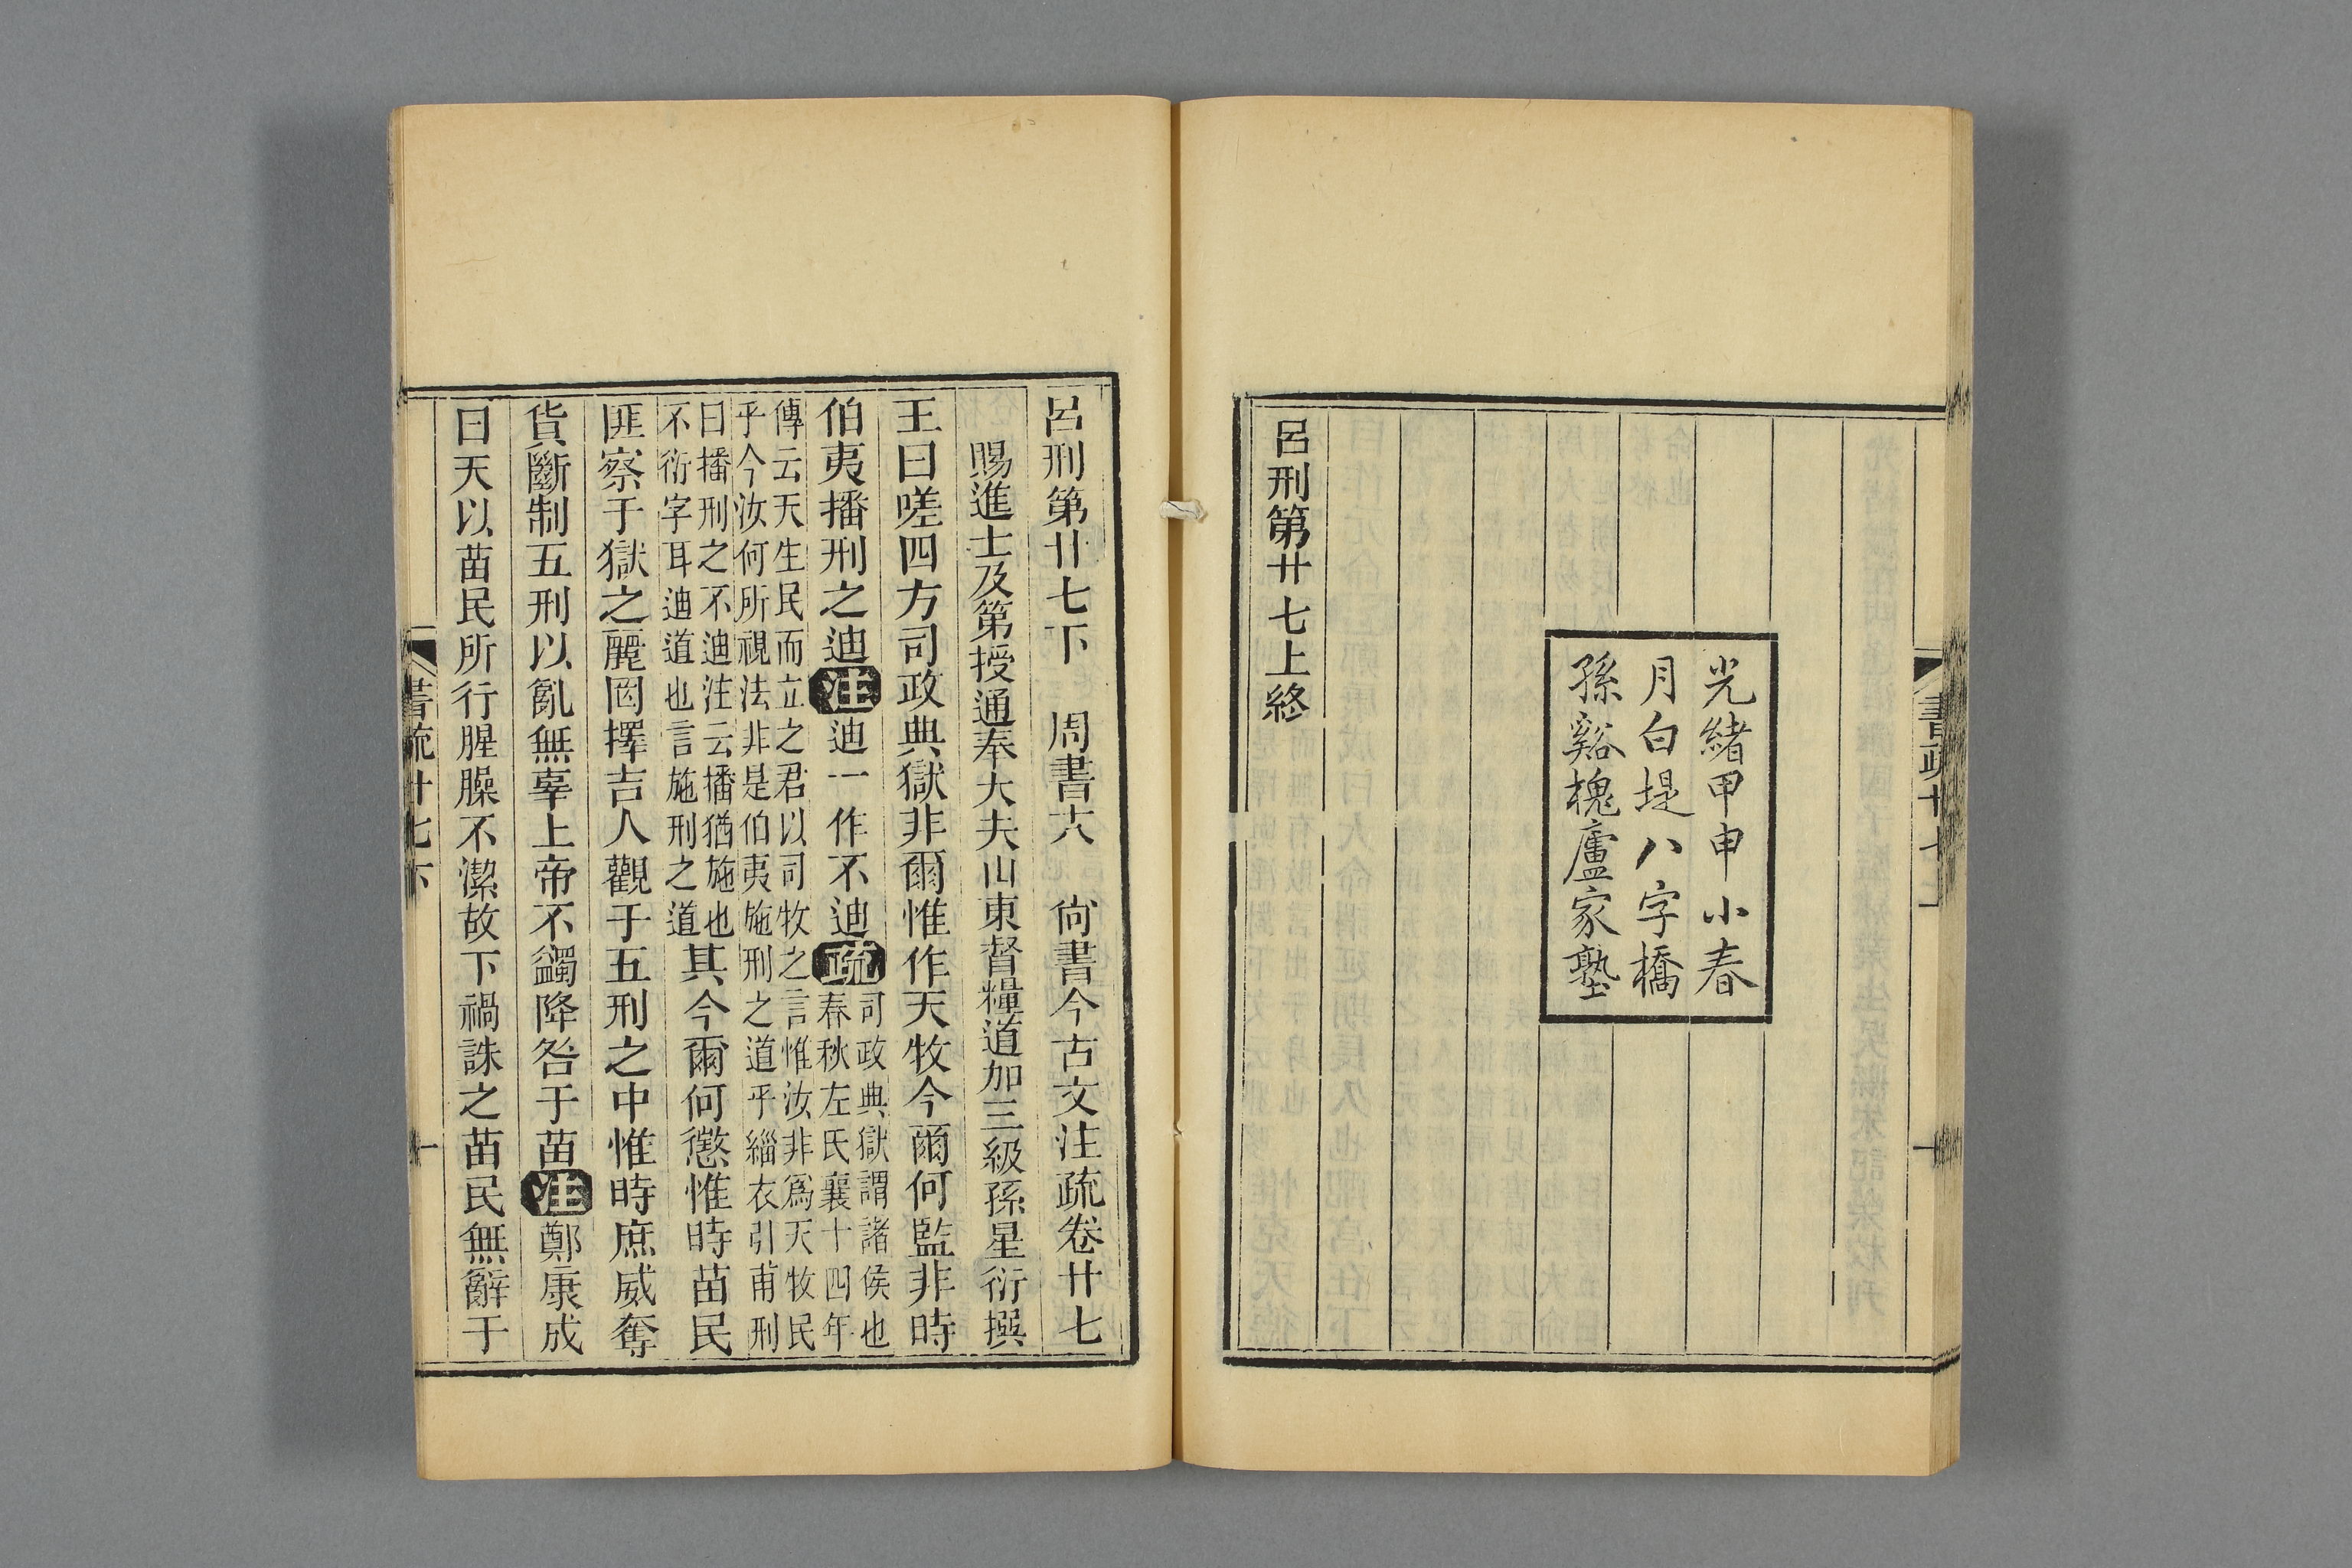 書疏廿七上
光緒甲申小春
月白堤八字橋
孫谿槐廬家塾
呂刑第廿七上終
呂刑第廿七下 周書十八 尙書今古文注疏卷廿七
賜進士及第授通奉大夫山東督糧道加三級孫星衍撰
王曰嗟四方司政典獄非爾惟作天牧今爾何監非時
伯夷播刑之迪注迪一作不迪疏司政典獄謂諸侯也
春秋左氏襄十四年
傳云天生民而立之君以司牧之言惟汝非爲天牧民
乎今汝何所視法非是伯夷施刑之道乎緇衣引甫刑
曰播刑之不迪注云播猶施也
不衍字耳迪道也言施刑之道其今爾何懲惟時苗民
匪察于獄之麗罔擇吉人觀于五刑之中惟時庶威奪
貨斷制五刑以亂無辜上帝不蠲降咎于苗注鄭康成
曰天以苗民所行腥臊不潔故下禍誅之苗民無辭于
書疏廿七下 一